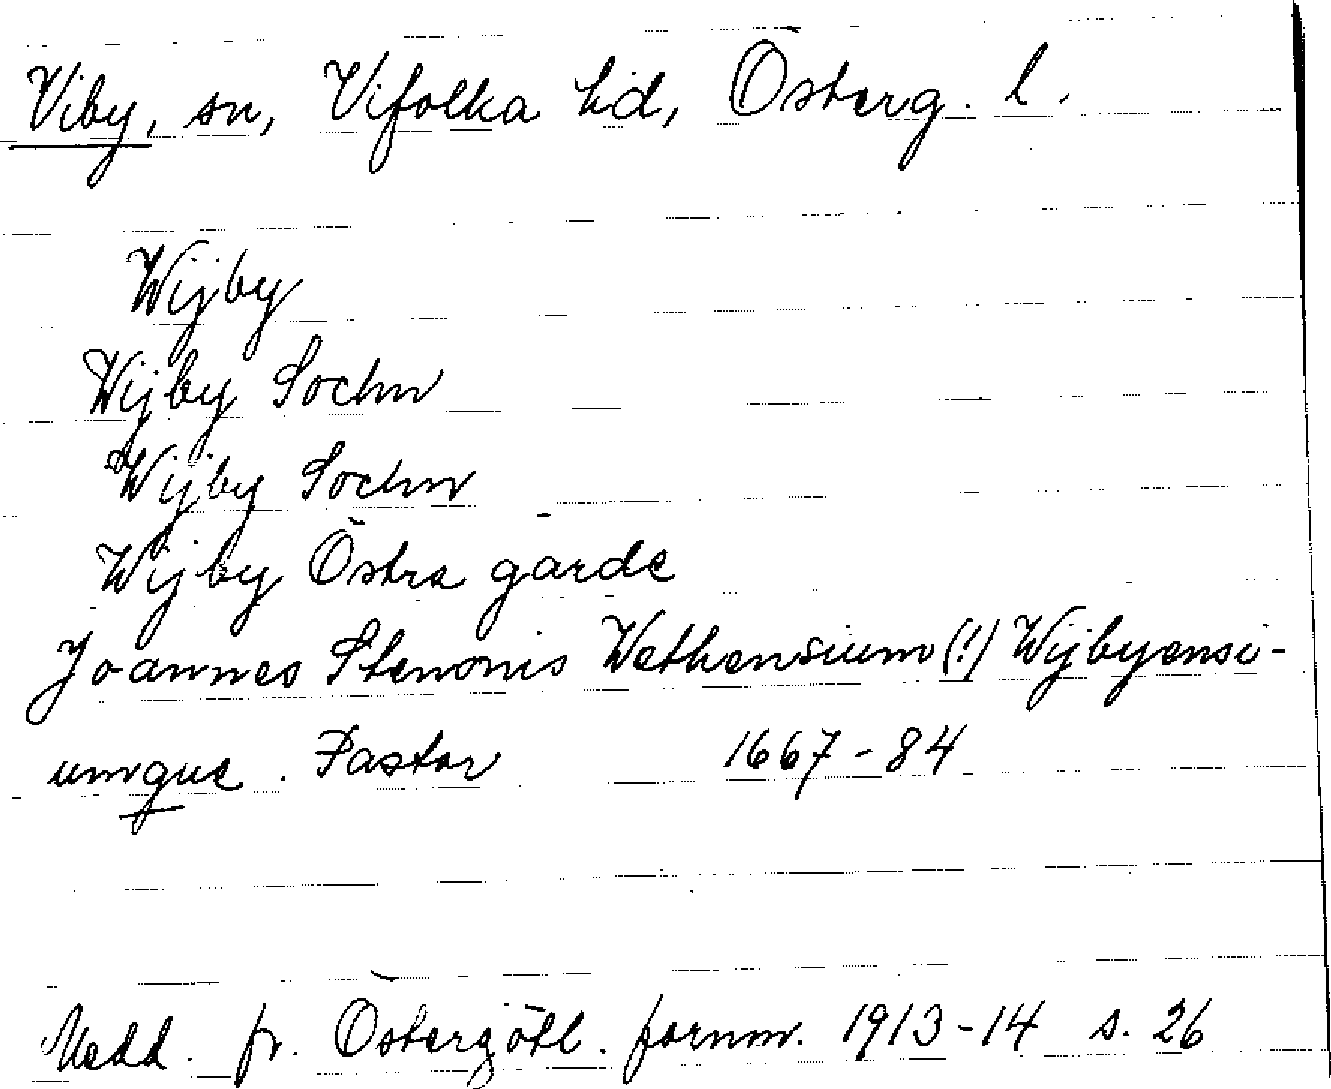 Viby, sn, Vifolka hd, Österg. l.
Wijby
Wijby Sochn
Wijby Sochn
Wijby Östra garde
Joannes Stenonis Wethensium (!) Wijbyensi-
umque. Pastor 1667-84
Medd. fr. Östergötl. fornm. 1913-14 s. 26